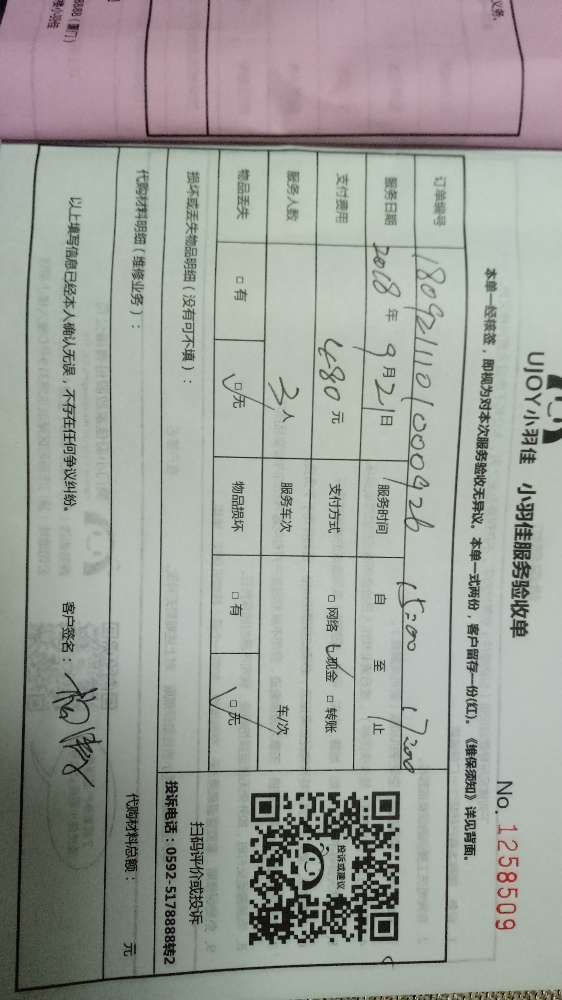 UJOY小羽佳 小羽佳服务验收单
No. 1258509
本单一经核签，即视为对本次服务验收无异议。本单一式两份，客户留存一份(红)。《维保须知》详见背面。
订单编号 18092111010000926
服务日期 2018年9月21日 服务时间 自15:00至17:00止
支付费用 480元 支付方式 □网络 ☑现金 □转账
服务人数 3人 服务车次 车/次
物品丢失 □有 ☑无 物品损坏 □有 ☑无
投诉或建议
扫码评价或投诉
投诉电话：0592-5178888转2
损坏或丢失物品明细（没有可不填）：
代购材料明细（维修业务）：
代购材料总额： 元
以上填写信息已经本人确认无误，不存在任何争议纠纷。 客户签名：